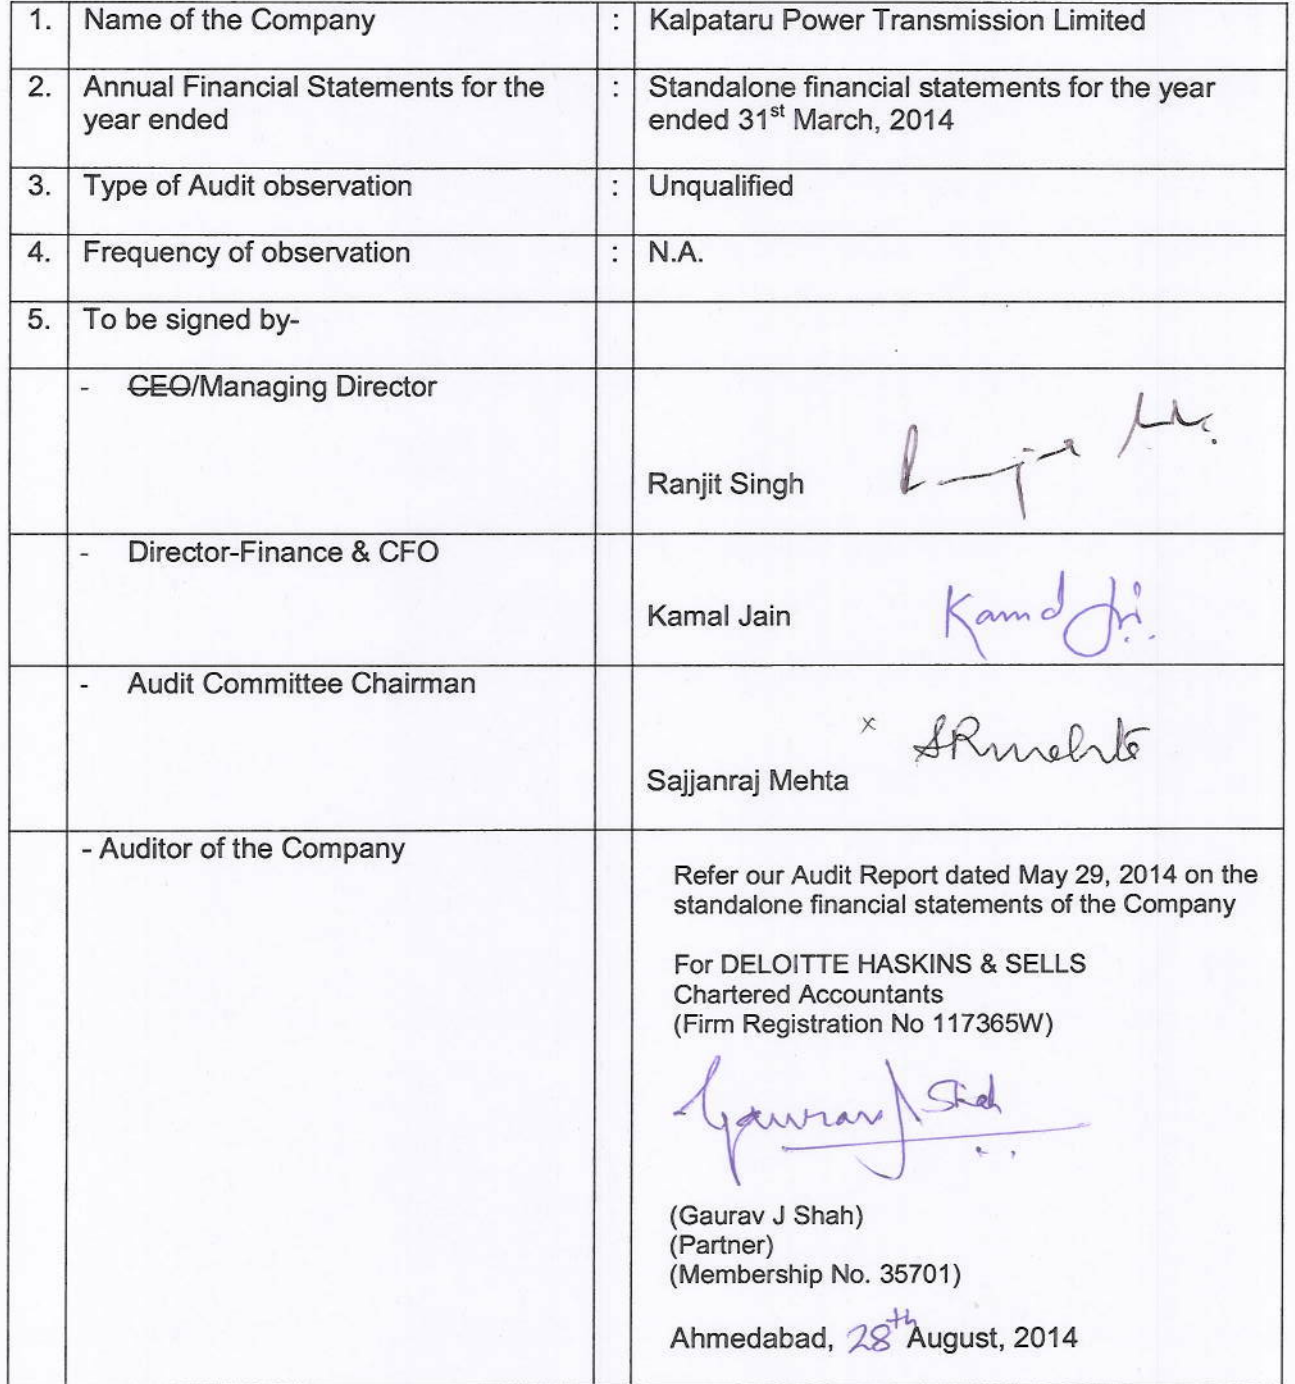 1. Name of the Company : Kalpataru Power Transmission Limited
2. Annual Financial Statements for the : Standalone financial statements for the year
year ended ended 31st March, 2014
3. Type of Audit observation : Unqualified
4. Frequency of observation : N.A.
5. To be signed by-
- CEO/Managing Director
Ranjit Singh
- Director-Finance & CFO
Kamal Jain Kamal Jain
- Audit Committee Chairman
x SRmehta
Sajjanraj Mehta
- Auditor of the Company
Refer our Audit Report dated May 29, 2014 on the
standalone financial statements of the Company
For DELOITTE HASKINS & SELLS
Chartered Accountants
(Firm Registration No 117365W)
Gaurav J Shah
(Gaurav J Shah)
(Partner)
(Membership No. 35701)
Ahmedabad, 28th August, 2014